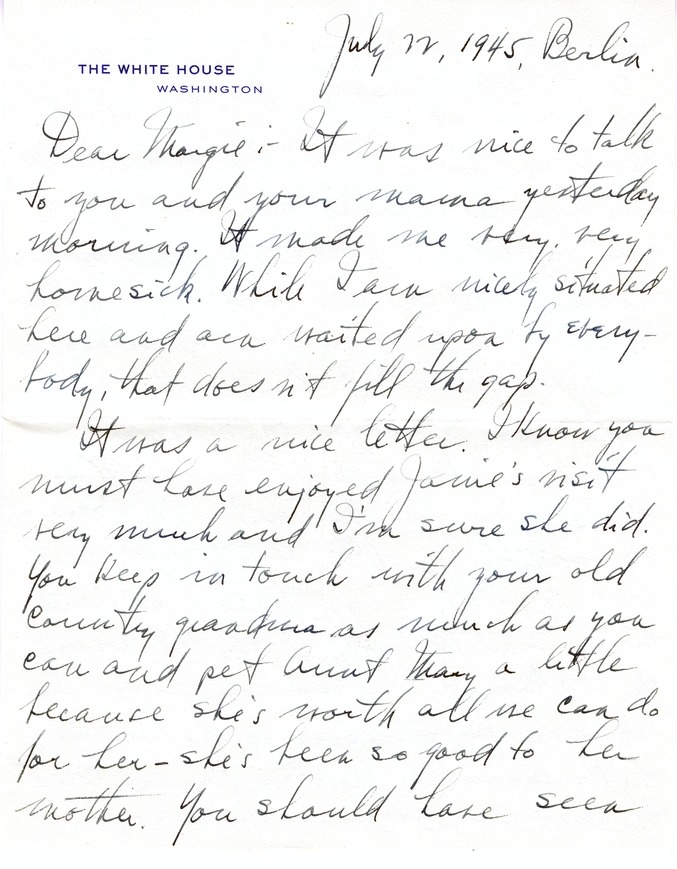 July 22, 1945, Berlin.
THE WHITE HOUSE
WASHINGTON
Dear Margie:- It was nice to talk
to you and your mama yesterday
morning. It made me very, very
homesick. While I am nicely situated
here and am waited upon by every-
body, that does n't fill the gap.
It was a nice letter. I know you
must have enjoyed Janie's visit
very much and I'm sure she did.
You keep in touch with your old
country grandma as much as you
can and pet Aunt Mary a little
because she's worth all we can do
for her - she's been so good to her
mother. You should have seen